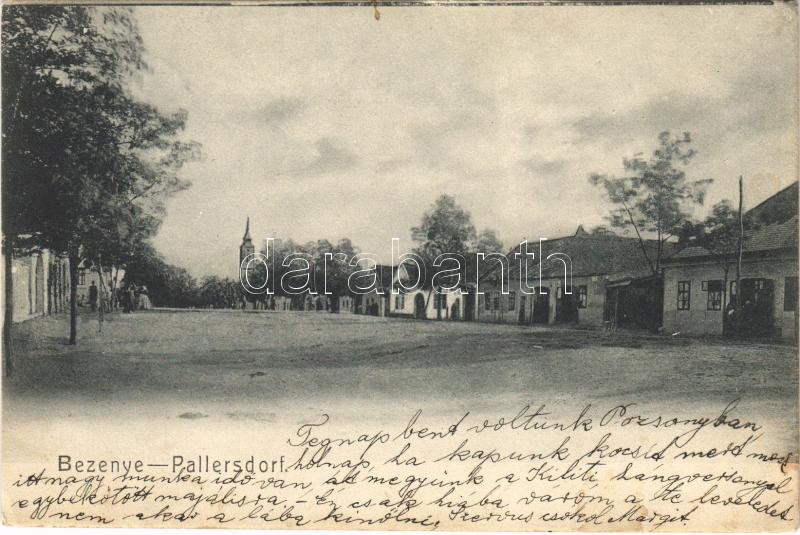 darabanth
Bezenye—Pallersdorf.
Tegnap bent voltunk Pozsonyban,
holnap, ha kapunk kocsit mert most
itt nagy munka idő van, át megyünk a Kiliti hangversenyel
egybekötött majálisra – Én csak hiába várom a te leveledet
nem akar a lába kinőlni, Szervus csókol Margit